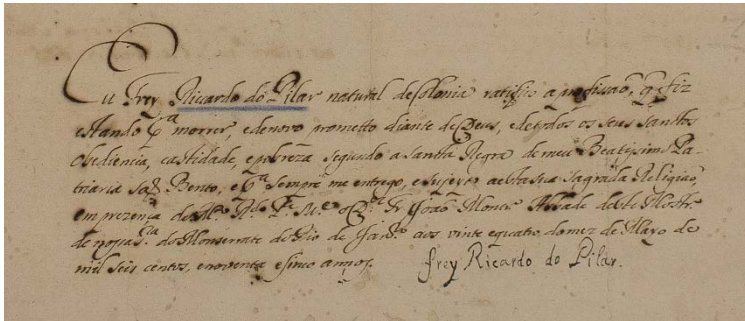 Eu Frey Ricardo do Pilar natural de Colonia ratifico a profissaõ, q̃ fiz
estando pª morrer, e de novo prometto diante de Deus, e de todos os seus Santos
obediencia, castidade, e pobreza segundo a santa Regra de meu Beatissimo Pa-
triarca Saõ Bento, e pª sempre me entrego, e sujeito a esta sua sagrada Religiaõ
em prezença do M. R.do P.e Fr. Joaõ Abbade deste Mostr.º
de nossa S.ra do Monserrate do Rio de Jan.ro aos vinte e quatro do mez de Mayo de
mil seis centos, e noventa e sinco annos. frey Ricardo do Pilar.